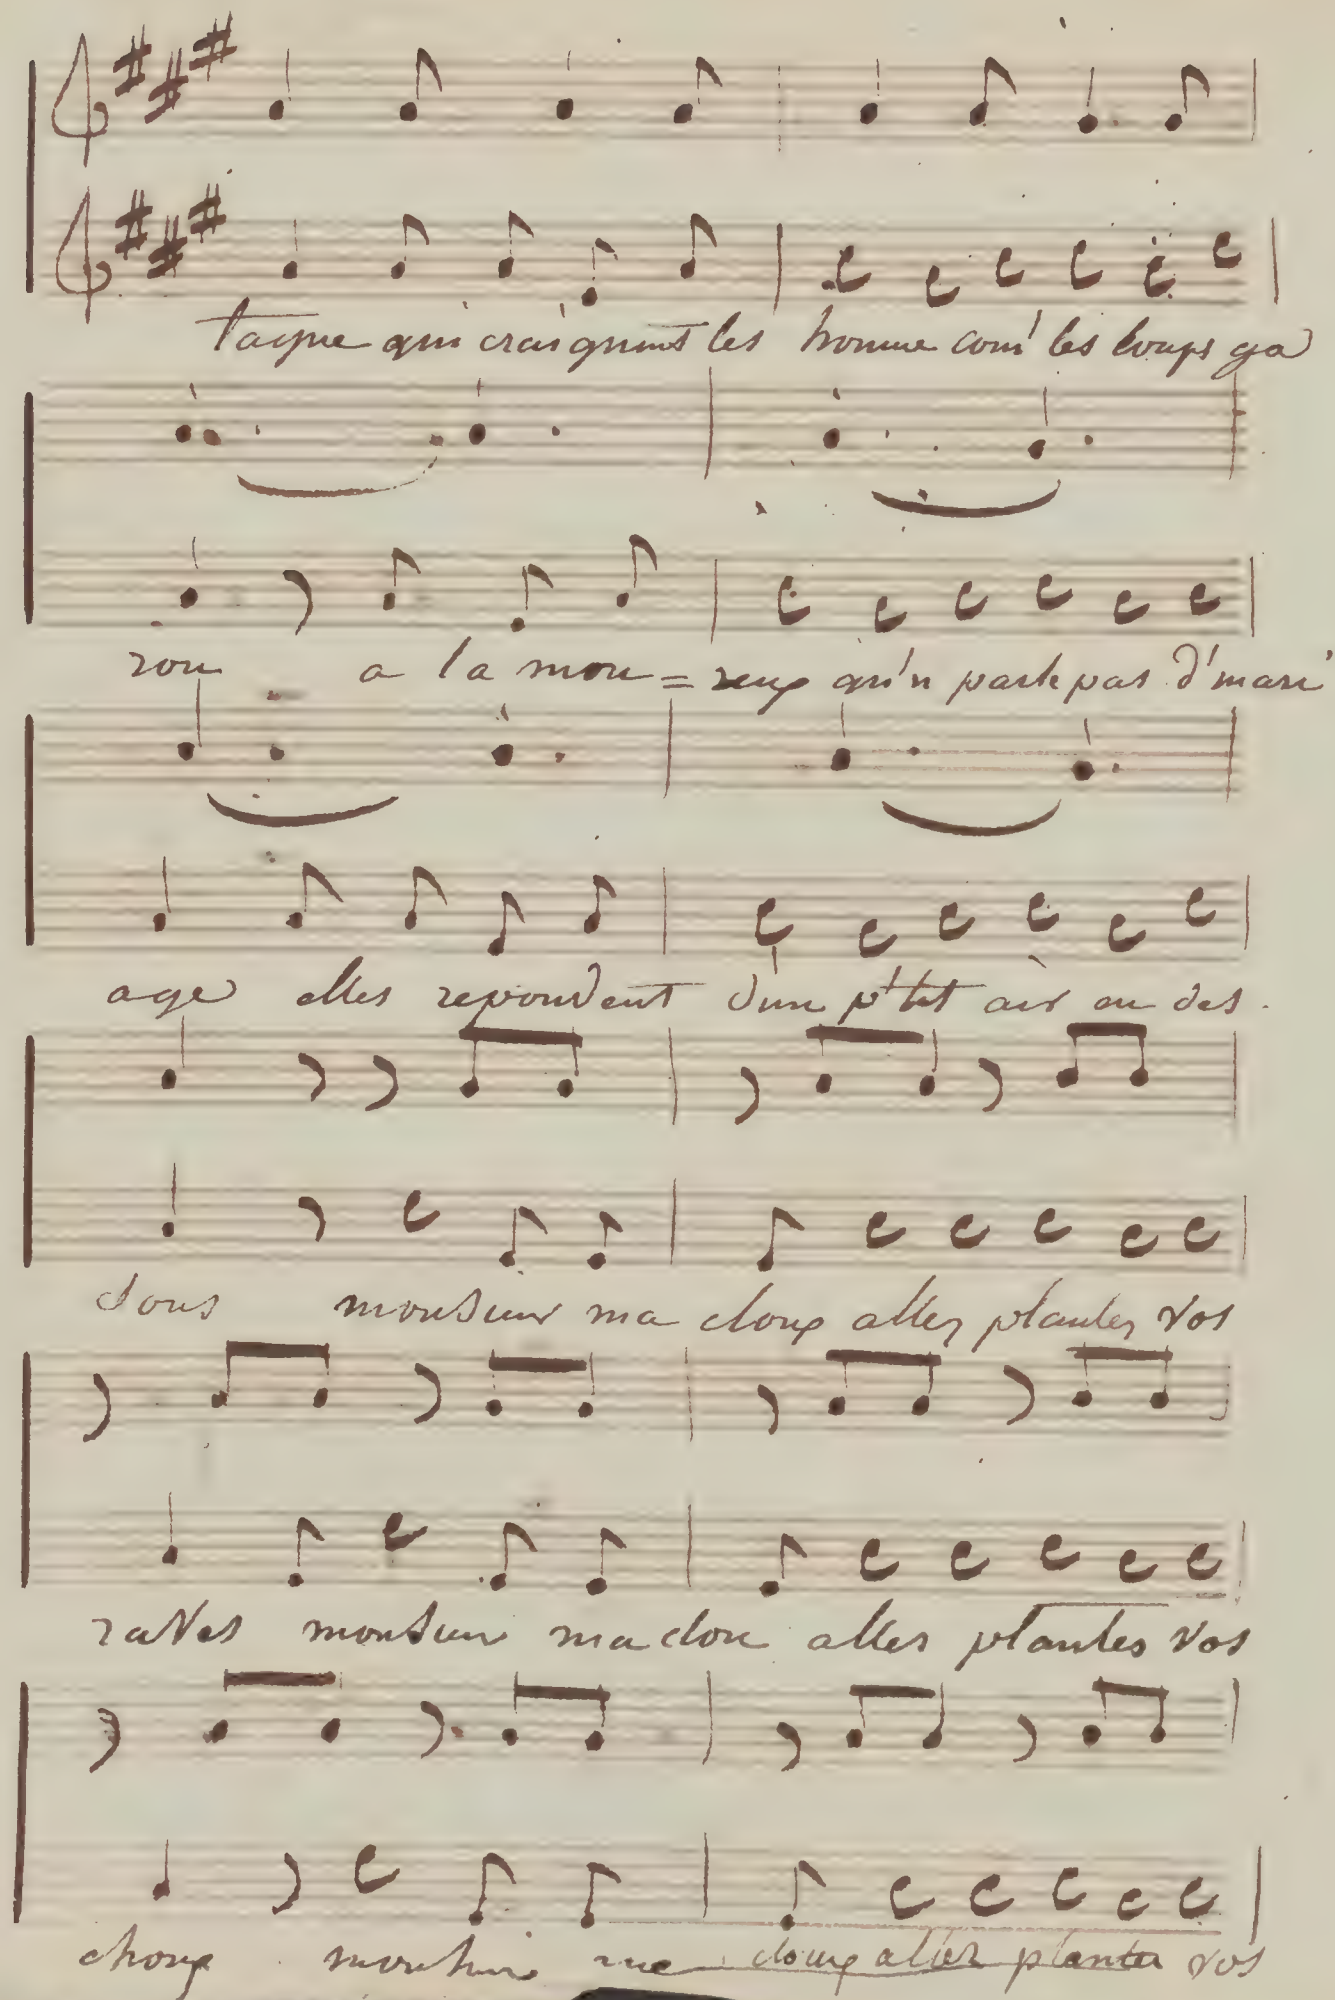 taque qui craignent les homme com' les loups ga
rou a la mou = reux qu'n parle pas d'mari
age elles repondent d'un p'tit air en des
sous monsieur ma doux allez planter vos
raves monsieur ma dou aller plantes vos
choux monsieur me doux aller planter vos